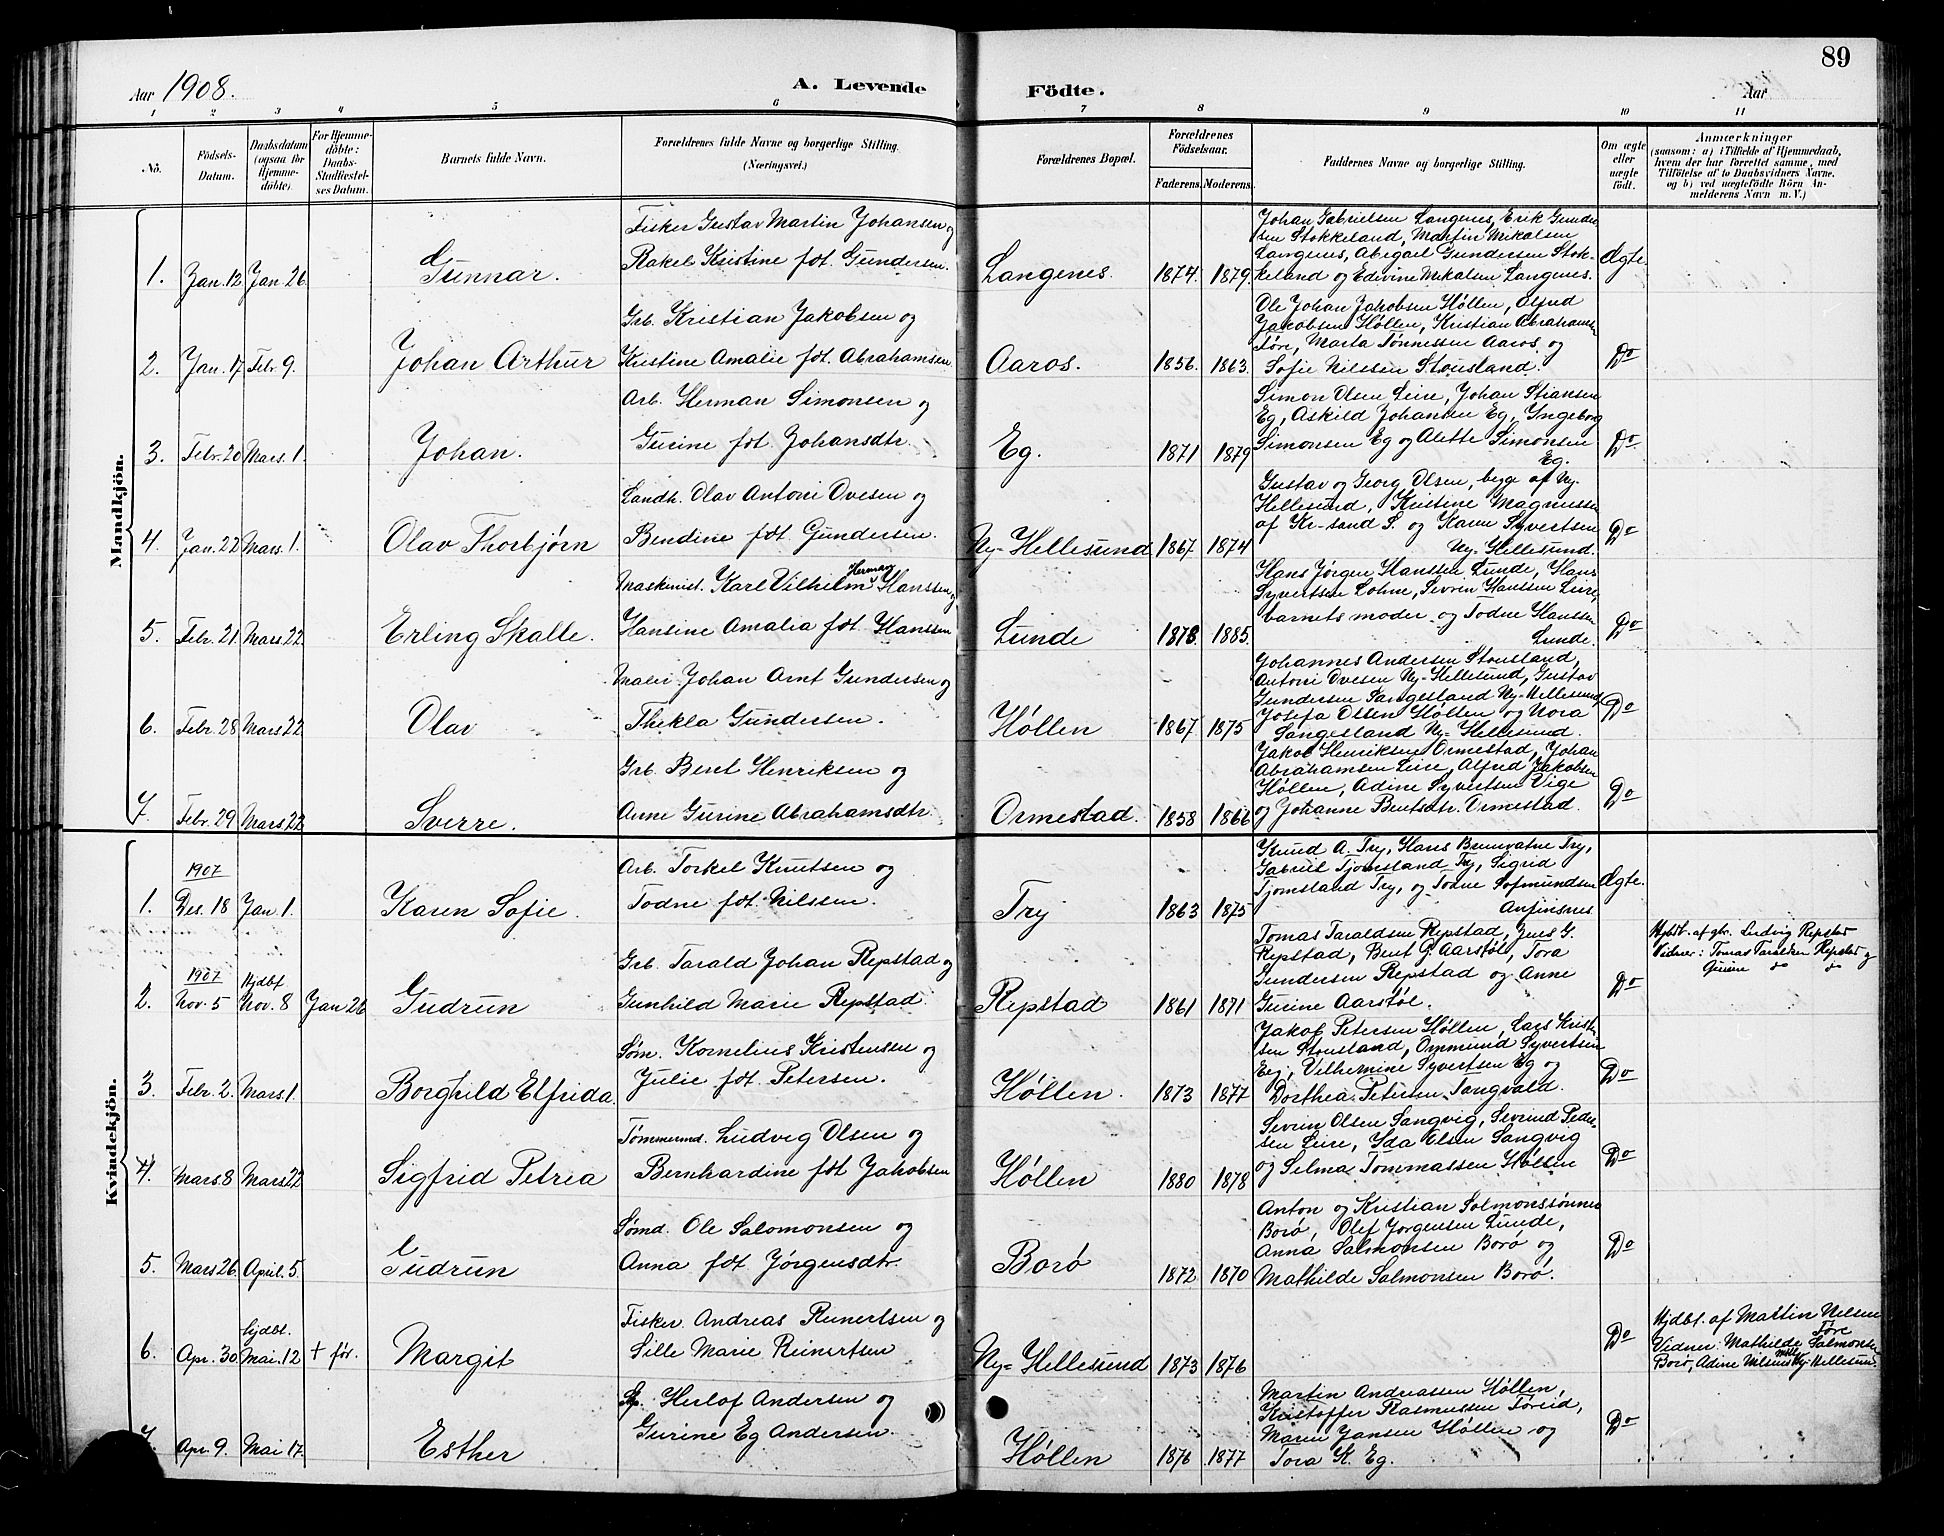 Aar 1908.
A. Levende
Födte.
Aar
89
1 2 3 4 5 6 7 8 9 10 11
No.
Födsels-Datum.
Daabsdatum (ogsaa for Hjemme-döbte).
For Hjemme-döbte: Daabs-Stadfæstel-ses Datum.
Barnets fulde Navn.
Forældrenes fulde Navne og borgerlige Stilling. (Næringsvei.)
Forældrenes Bopæl.
Forældrenes Födselsaar.
Faderens. Moderens.
Faddernes Navne og borgerlige Stilling.
Om ægte eller uægte födt.
Anmærkninger
(saasom: a) i Tilfælde af Hjemmedaab, hvem der har forrettet samme, med Tilföielse af to Daabsvidners Navne, og b) ved uægtefödte Börn An-melderens Navn m. V.)
Mandkjön.
Fisker Gustav Martin Johansen og
1. Jan. 12 Jan. 26. Gunnar. Rakel Kristine fdt. Gundersen. Langenes. 1874. 1879. Ægte
Johan Gabrielsen Langenes, Erik Gunder
sen Stokkeland, Martin Mikalsen
Langenes, Abigael Gundersen Stok-
keland og Edvine Mikalsen Langenes.
Grb. Kristian Jakobsen og
2. Jan. 17 Febr. 9. Johan Arthur Kristine Amalie fdt. Abrahamsen Aaros. 1856. 1863. Do
Ole Johan Jakobsen Høllen, Alfred
Jakobsen Høllen, Kristian Abrahams-
Tøre, Marta Tønnessen Aaros og
Sofie Nilsen Stousland.
Arb. Herman Simonsen og
3. Febr. 20 Mars. 1. Johan. Gurine fdt. Johansdtr. Eg. 1871 1879 Do
Simon Olsen Leire, Johan Stiansen
Eg, Askild Johansen Eg, Yngeborg
Simonsen Eg og Alette Simonsen
Eg.
Landh. Olav Antoni Ovesen og
4. Jan. 22 Mars. 1. Olav Thorbjørn Bendine fdt. Gundersen. Ny-Hellesund 1867. 1874 Do
Gustav og Georg Olsen, begge af Ny-
Hellesund, Kristine Magnussen
af Kr-sand S. og Karen Syvertsen
Ny-Hellesund.
Maskinist. Karl Vilhelm Herman Hanssen og
5. Febr. 21. Mars. 22 Erling Skalle. Hansine Amalia fdt. Hanssen Lunde 1878. 1885. Do
Hans Jørgen Hanssen Lunde, Hans
Syvertsen Lohne, Sevren Hanssen Leire,
barnets moder og Todne Hanssen
Lunde.
Maler. Johan Arnt Gundersen og
6. Febr. 28 Mars 22 Olav Thekla Gundersen. Høllen 1867. 1875 Do
Johannes Andersen Stousland,
Antoni Ovesen Ny-Hellesund, Gustav
Gundersen Sangesland Ny-Hellesund,
Josefa Olsen Høllen og Nora
Sangesland Ny-Hellesund.
Grb. Bent Henriksen og
7. Febr. 29 Mars. 22 Sverre. Anne Gurine Abrahamsdtr. Ormestad. 1858 1866 Do
Jakob Henriksen Ormestad, Johan
Abrahamsen Leire, Alfred Jakobsen
Høllen, Adine Syvertsen Vige
og Johanne Bentsdtr. Ormestad.
Kvindekjön.
1907 Arb. Torkel Knutsen og
1. Des. 18 Jan. 1. Karen Sofie. Todne fdt. Nilssen. Try 1863 1875 Ægte.
Knud A. Try, Hans Brunvatne Try,
Gabriel Tjomsland Try, Sigrid
Tjomsland Try, og Todne Sofmundsen
Anfinsnes.
1907 Hjdbt Grb. Tarald Johan Repstad og
2. Nov. 5 Nov. 8 Jan 26 Gudrun Gunhild Marie Repstad. Repstad 1861 1871 Do
Tomas Taraldsen Repstad, Jens G.
Repstad, Bent G. Aarstøl, Tora
Gundersen Repstad og Anne
Gurine Aarstøl.
Hjdbt. af gbr. Ludvig Repstad
Vidner: Tomas Taraldsen Repstad og
Gurine do do
Søm. Kornelius Kristensen og
3. Febr. 2. Mars. 1. Borghild Elfrida. Julie fdt. Petersen. Høllen. 1873 1877 Do
Jakob Petersen Høllen, Lars Krist-
sen Stousland, Ommund Syvertsen
Eg, Vilhemine Syvertsen Eg og
Dorthea Petersen Tangvald.
Tømmermd. Ludvig Olsen og
4. Mars. 8 Mars 22 Sigfrid Petrea Bernhardine fdt Jakobsen Høllen 1880 1878 Do
Sevrin Olsen Langvig, Severind Peder-
sen Leire, Yda Olsen Langvig
og Selma Tommassen Høllen
Sømd. Ole Salomonsen og
5. Mars 26. April. 5. Gudrun Anna fdt Jørgensdtr. Borø 1872 1870 Do
Anton og Kristian Salmonssønner
Borø, Olef Jørgensen Lunde,
Anna Salmonsen Borø og
Mathilde Salmonsen Borø.
Hjdbt. Fisker Andreas Reinertsen og
6. Apr. 30. Mai. 12 + før. Margit Sille Marie Reinertsen Ny-Hellesund 1873 1876 Do
Hjdbt. af Martin Nilsen
Tøre
Vidner: Mathilde Salmonsen
Borø, Adine Nilsen Ny-Hellesund.
Herlof Andersen og
7. Apr. 9. Mai 17. Esther Gurine Eg Andersen. Høllen 1876 1877 Do
Martin Andreassen Høllen,
Kristoffer Rasmussen Toreid,
Marie Jansen Høllen og
Tora K. Eg.